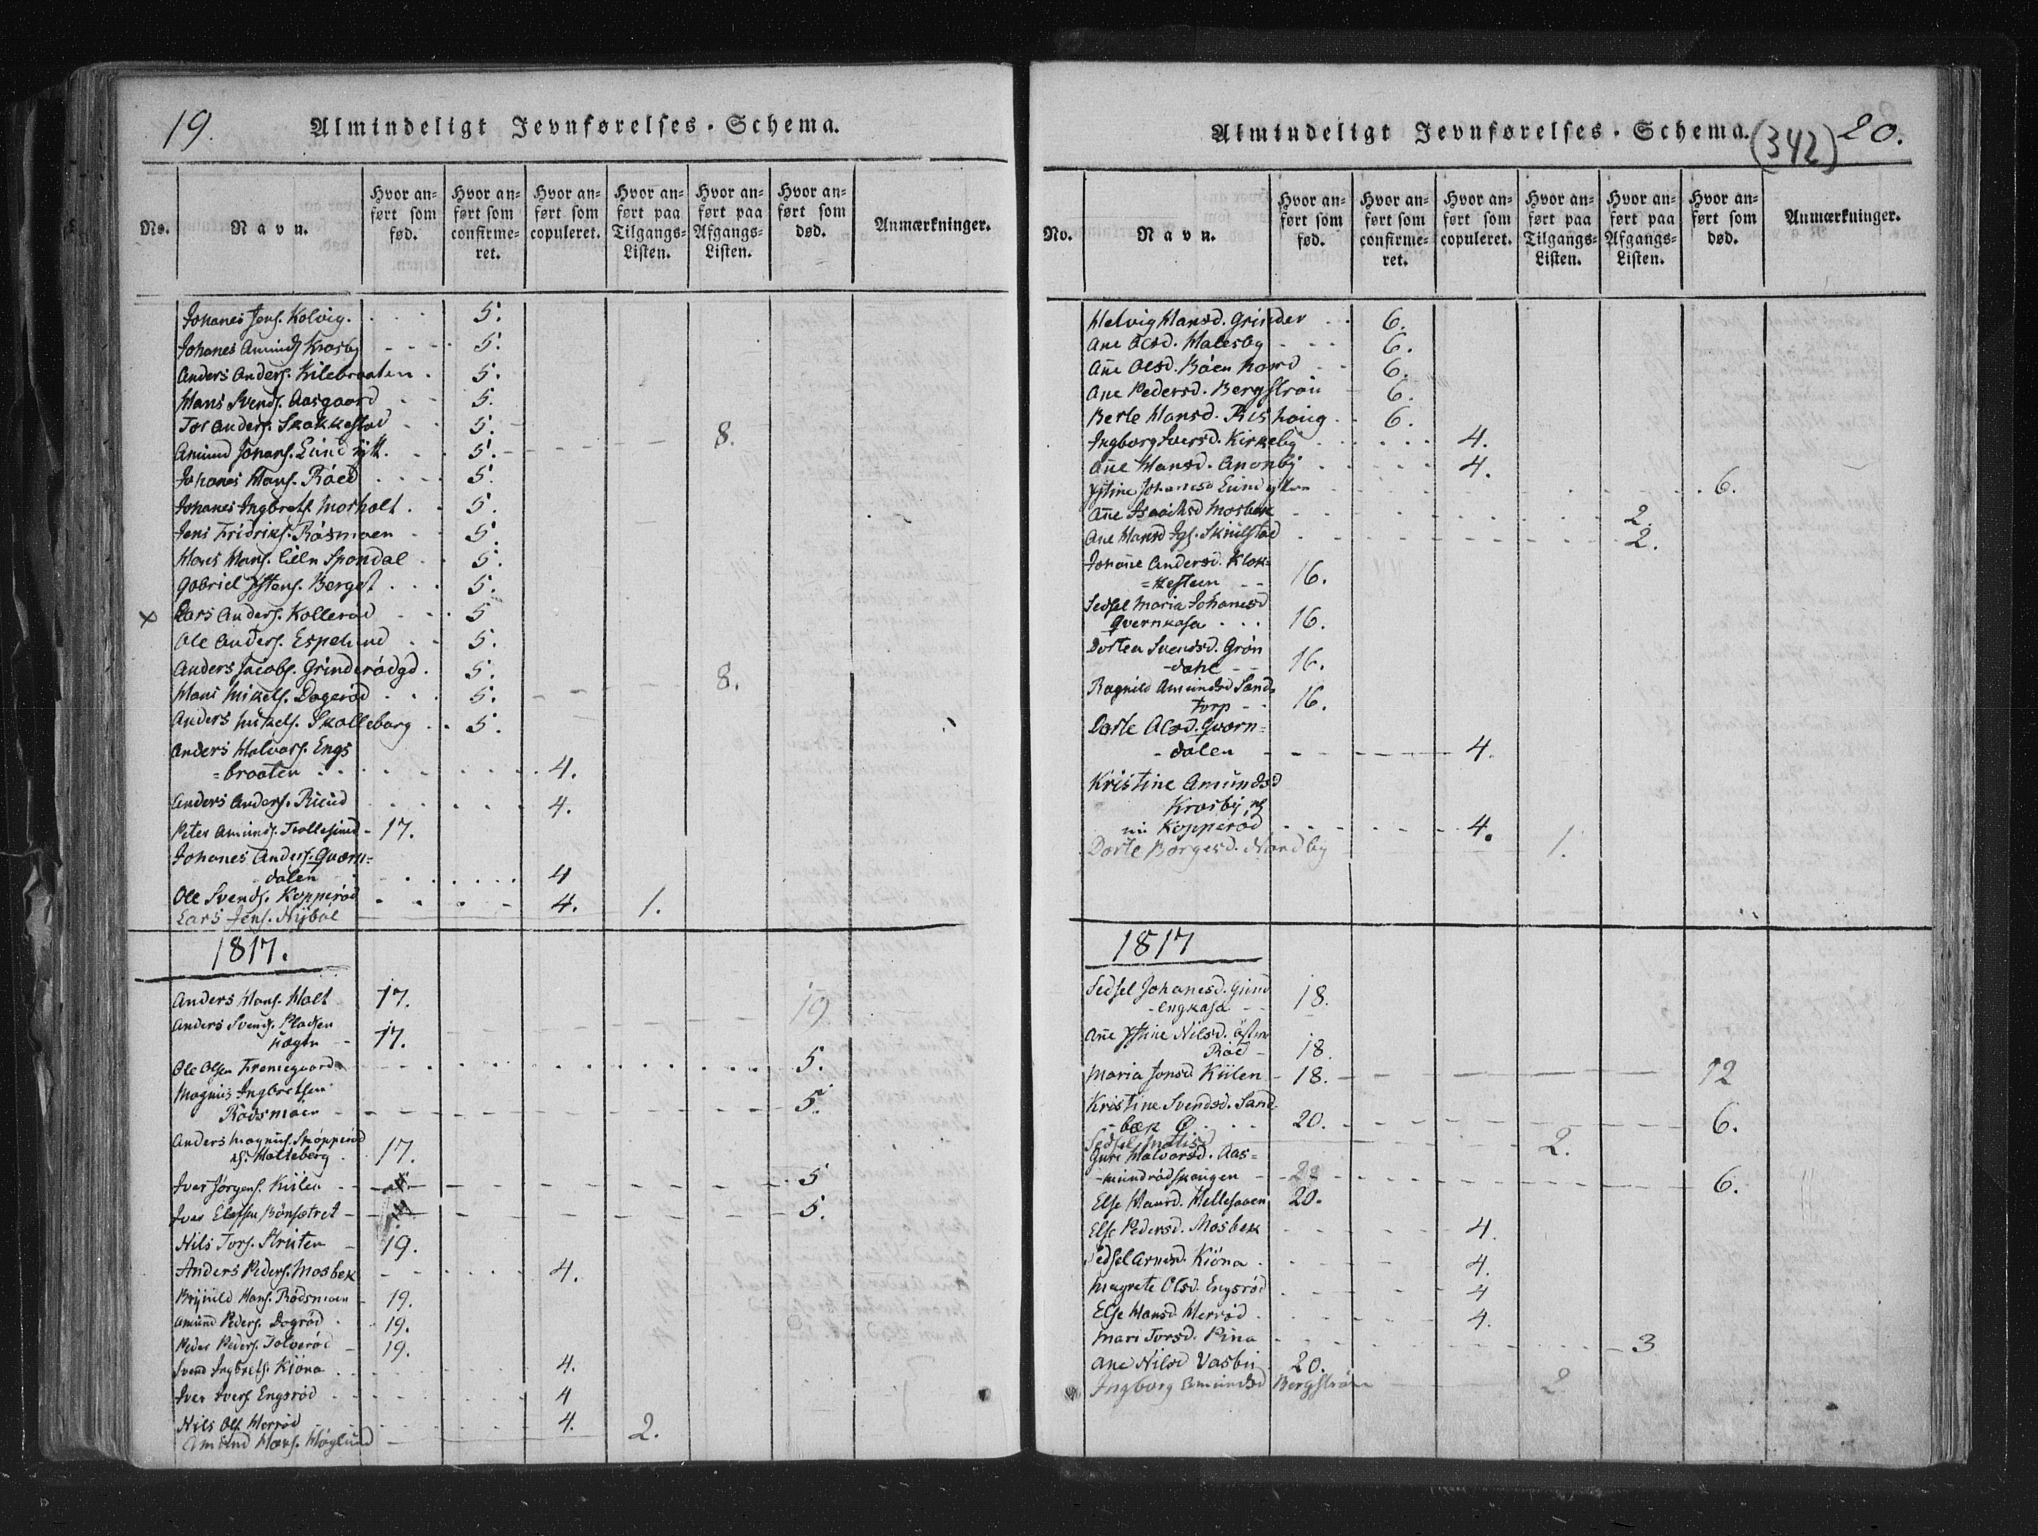 19.
Almindeligt Jevnførelses-Schema.
No. Navn. Hvor anført som fød. Hvor anført som confirmeret. Hvor anført som copuleret. Hvor anført paa Tilgangs-Listen. Hvor anført paa Afgangs-Listen. Hvor anført som død. Anmærkninger.
Johanes Jens. Kolvig. 5.
Johanes Amunds Krosby 5.
Anders Anders. Kilebraaten 5.
Hans Svends. Aasgaard 5.
Tor Anders. Skakkestad 5.
Amund Johans. 5. 8.
Johanes Hans. Röed 5.
Johanes Ingbrets. Mosholt 5.
Jens Fridriks. Rösmoen 5.
Hans Hans. Lilln Spondal 5.
Gabriel Berget 5.
x Lars Anders. Kolleröd 5
Ole Anders. Espelund 5.
Anders Jacobs. Grinderödgd. 5.
Hans Mikels. Dogeröd 5. 8.
Anders Mikels. Skolleborg 5.
Anders Halvors. Engs
=braaten 4.
Anders Anders. Ruud 4.
Peter Amunds. Trollesund 17.
Johanes Anders. Qværn=
dalen 4
Ole Svends. Kopperöd 4. 1.
Lars Jens. Nybøl
1817.
Anders Hans. Holt 17. 19
Anders Svends. Pladsen
Hagen 17.
Ole Olsen Fremegaard 5.
Magnus Ingbretsen
Rödsmoen 5.
Anders Magnus. Skopperöd
Holteberg 17.
Iver Jørgens. Kiilen 5
Iver Elefsen Bönsætret 5.
Nils Tors. Struten 19.
Anders Peders. Mosbek 4.
Brynild Hans. Rödsmoen 19.
Amund Peders. Dogröd 19.
Peder Peders. Tolveröd 19.
Svend Ingbrets. Kiöna 4.
Iver Ivers. Engsröd 4
Nils Ols. Herröd 4. 2.
Amund Hans. Höglund
Almindeligt Jevnførelses-Schema. (342) 20.
No. Navn. Hvor anført som fød. Hvor anført som confirmeret. Hvor anført som copuleret. Hvor anført paa Tilgangs-Listen. Hvor anført paa Afgangs-Listen. Hvor anført som død. Anmærkninger.
Helvig Hansd. Grinder 6.
Ane Olsd. Halesby 6.
Añe Olsd. Böen nord 6.
Ane Pedersd. Bergströn 6.
Berte Hansd. Rishoug 6.
Ingborg Iversd. Kirkeby 4.
Añe Hansd. Anonby 4.
Johanesd 6.
Añe Isaachsd Mosbek 2.
Ane Hansd Skulstad 2.
Johañe Andersd. Klok=
=kesteen 16.
Sedsel Maria Johanesd
Qvernkasa 16.
Dorten Svendsd. Grøn
dahl 16.
Ragnild Amundsd Sands
torp 16.
Dorte Olsd. Qværn=
dalen 4.
Kristine Amundsd
Krosby og
Kopperöd 4.
Dorte Borgesd. Nordby 1.
1817
Sedsel Johanesd. Gund
engkasa 18.
Añe Nilsd.
Röd 18.
Maria Jonsd. Kiilen 18. 12
Kristine Svendsd. Sand
bæk 20. 6.
Sedsel 2.
Guri Halvorsd. Aas=
mundrödskougen 6.
Else Haard. Hellesaaen 20.
Else Pedersd. Mosbek 4.
Sedsel Arnesd. Kiöna 4.
Magrete Olsd. Engsröd 4
Else Hansd. Herröd 4.
Mari Torsd. Pina 3
Ane Nilsd Vasbii 20.
Ingborg Amundsd Bergström 2